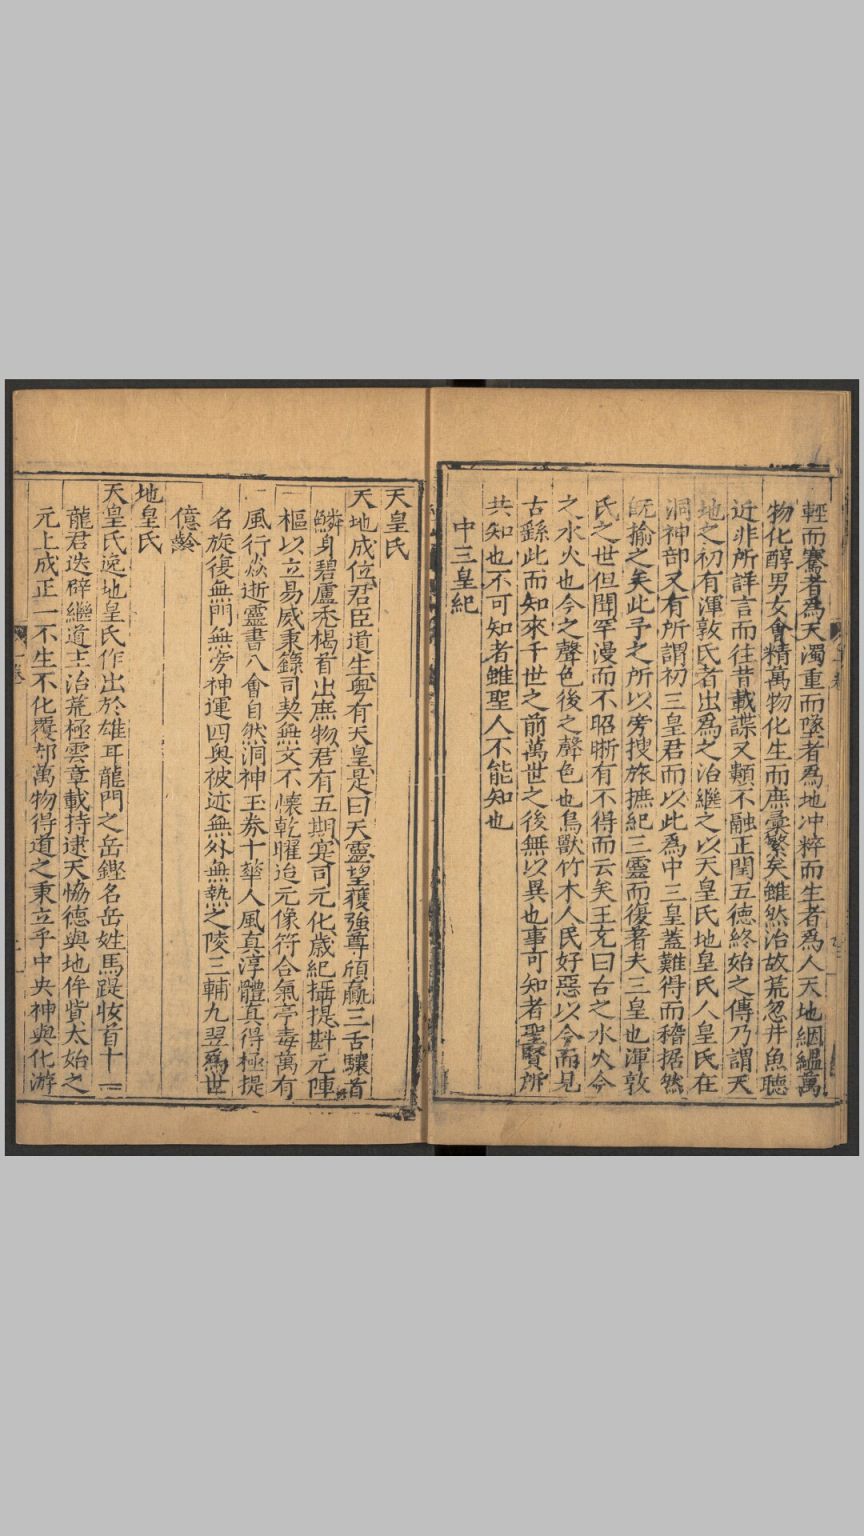 輕而騫者爲天濁重而墜者爲地冲粹而生者爲人天地絪縕萬
物化醇男女會精萬物化生而庶彚繁矣雖然治故荒忽井魚聴
近非所詳言而往昔載諜又頪不融正閏五德終始之傳乃謂天
地之初有渾敦氏者出爲之治繼之以天皇氏地皇氏人皇氏在
洞神部又有所謂初三皇君而以此爲中三皇蓋難得而稽据然
既揄之矣此予之所以旁搜旅摭紀三靈而復著夫三皇也渾敦
氏之世但聞罕漫而不昭晣有不得而云矣王充曰古之水火今
之水火也今之聲色後之聲色也鳥獸竹木人民好惡以今而見
古繇此而知來千世之前萬世之後無以異也事可知者聖賢所
共知也不可知者雖聖人不能知也
中三皇紀
天皇氏
天地成位君臣道生粤有天皇是曰天靈望獲強尊頎羸三舌驤首
鱗身碧盧禿楬首出庶物君有五期寔司元化歳紀攝提斟元陳
樞以立易威秉籙司契無文不懐乾曜迨元像符合氣亭毒萬有
風行焱逝靈書八會自然洞神玉券十華人風真淳體真得極提
名旋復無門無旁神運四奥被迹無外無熱之陵三輔九翌爲世
億齡
地皇氏
天皇氏逸地皇氏作出於雄耳龍門之岳鏗名岳姓馬踶妝首十一
龍君迭辟繼道主治荒極雲章載持逮天恊德與地侔貲太始之
元上成正一不生不化覆却萬物得道之秉立乎中央神與化游